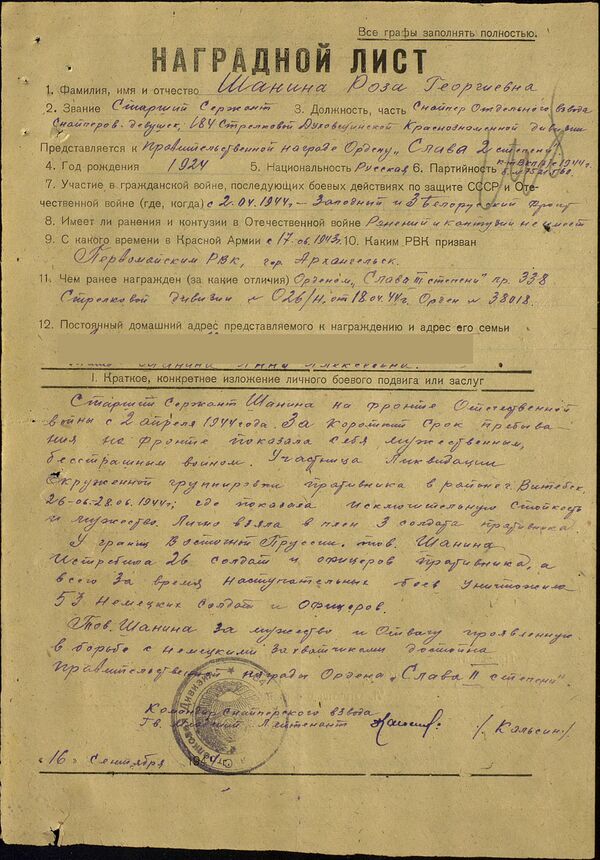 Все графы заполнять полностью.
НАГРАДНОЙ ЛИСТ
1. Фамилия, имя и отчество Шанина Роза Георгиевна
2. Звание Старший Сержант 3. Должность, часть Снайпер Отдельного взвода
Снайперов-девушек, 184 Стрелковой Духовщинской Краснознаменной дивизии
Представляется к Правительственной награде Ордену „Слава 2 степени"
4. Год рождения 1924 5. Национальность Русская 6. Партийность
7. Участие в гражданской войне, последующих боевых действиях по защите СССР и Оте-
чественной войне (где, когда) с 2.04.1944г. – Западный и 3 Белорусский фронт
8. Имеет ли ранения и контузии в Отечественной войне Ранений и контузии не имеет
9. С какого времени в Красной Армии с 17.06.1943г. 10. Каким РВК призван
Первомайским РВК, гор. Архангельск.
11. Чем ранее награжден (за какие отличия) Орденом „Слава III степени" пр. 338
Стрелковой дивизии № 026/н, от 18.04.44г. Орден № 38018.
12. Постоянный домашний адрес представляемого к награждению и адрес его семьи
Шанина Анна Алексеевна.
I. Краткое, конкретное изложение личного боевого подвига или заслуг
Старший Сержант Шанина на фронте Отечественной
войны с 2 апреля 1944 года. За короткий срок пребыва-
ния на фронте показала себя мужественным,
бесстрашным воином. Участница ликвидации
Окруженной группировки противника в районе г. Витебск,
26-06-28.06.1944г; где показала исключительную стойкость
и мужество. Лично взяла в плен 3 солдата противника.
У границ Восточной Пруссии. тов. Шанина
Истребила 26 солдат и офицеров противника, а
всего за время наступательных боев уничтожила
53 немецких солдат и офицеров.
Тов. Шанина за мужество и отвагу проявленную
в борьбе с немецкими захватчиками достойна
Правительственной награды Ордена „Слава II степени".
Командир снайперского взвода
Гв. Лейтенант /Кальсин/
„16" сентября